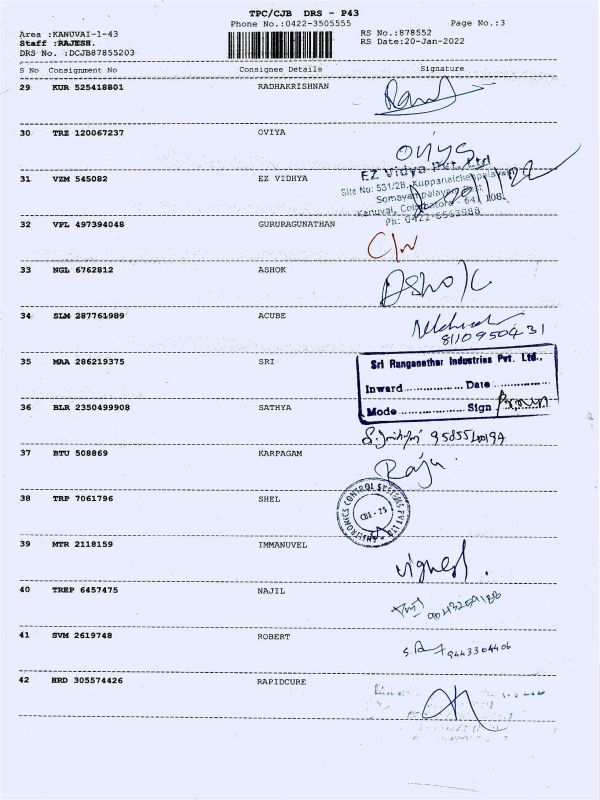 TPC/CJB DRS - P43
Phone No.:0422-3505555 Page No.:3
Area :KANUVAI-1-43 RS No.:878552
Staff :RAJESH. RS Date:20-Jan-2022
DRS No. :DCJB87855203
S No Consignment No Consignee Details Signature
29 KUR 525418801 RADHAKRISHNAN
30 TRZ 120067237 OVIYA Oviya
EZ Vidya Pvt. Ltd
31 VZM 545082 EZ VIDHYA
Site No: 531/2B, Kuppanaickenpalayam
Somayampalayam
Kanuvai, Coimbatore - 641 108.
Ph: 0422-6563988
32 VPL 497394048 GURURAGUNATHAN
33 NGL 6762812 ASHOK Ashok
34 SLM 287761989 ACUBE
8110950431
35 MAA 286219375 SRI Sri Ranganathar Industries Pvt. Ltd.,
Inward.................. Date................
Mode.................. Sign
36 BLR 2350499908 SATHYA
37 BTU 508869 KARPAGAM Raju
38 TRP 7061796 SHEL SHELTRONICS CONTROL SYSTEMS PVT LTD
CBE - 25
39 MTR 2118159 IMMANUVEL Vignesh.
40 TREP 6457475 NAJIL
41 SVM 2619748 ROBERT 9443304406
42 HRD 305574426 RAPIDCURE